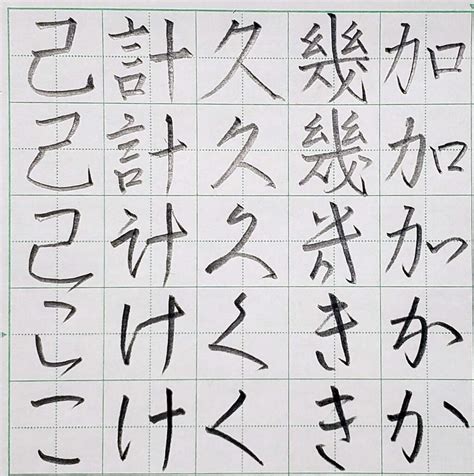 加加加かか
幾幾幾きき
久久久くく
計計計けけ
己己己ここ